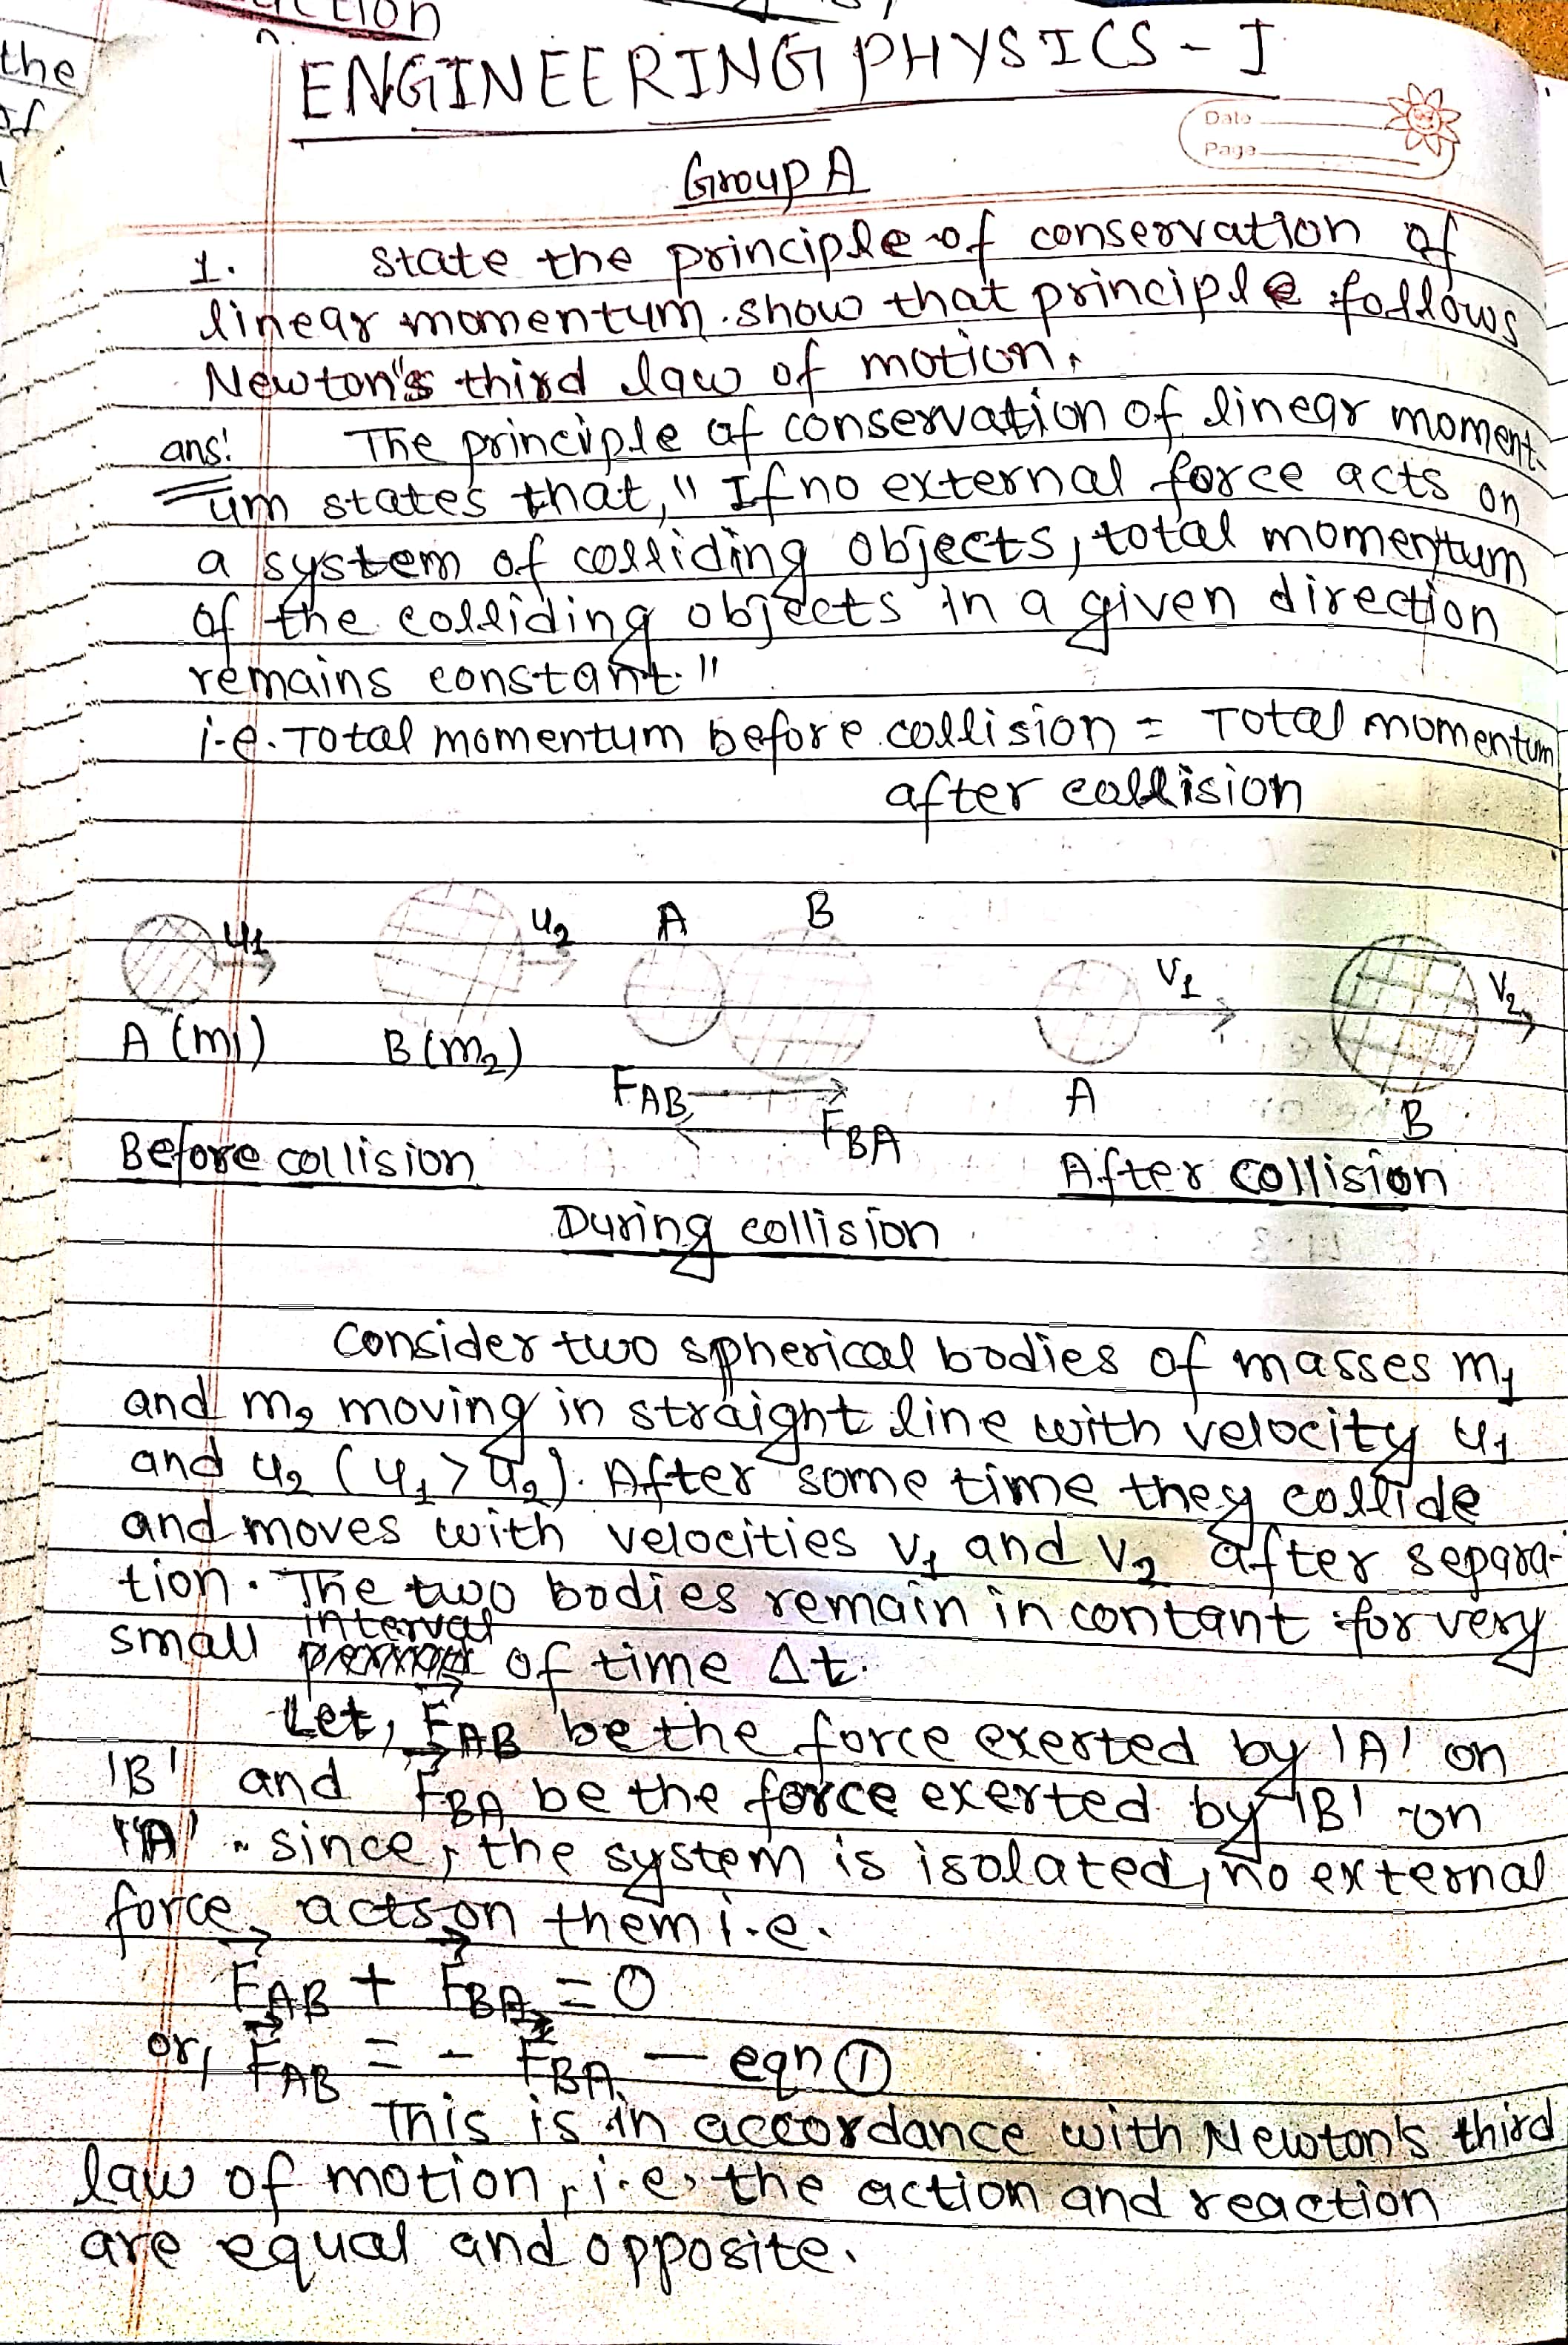 ction
the
of
ENGINEERING PHYSICS - I
Date
Page
Group A
1. state the principle of conservation of
linear momentum. show that principle follows
Newton's third law of motion.
ans: The principle of conservation of linear moment-
um states that, "If no external force acts on
a system of colliding objects, total momentum
of the colliding objects in a given direction
remains constant."
i.e. Total momentum before collision = Total momentum
after collision
u1 u2 A B V1 V2
A (m1) B (m2)
FAB FBA A B
Before collision After collision
During collision
Consider two spherical bodies of masses m1
and m2 moving in straight line with velocity u1
and u2 (u1 > u2). After some time they collide
and moves with velocities v1 and v2 after separa-
tion. The two bodies remain in contant for very
small interval of time Δt.
Let, F⃗AB be the force exerted by 'A' on
'B' and F⃗BA be the force exerted by 'B' on
'A'. since, the system is isolated, no external
force acts on them i.e.
F⃗AB + F⃗BA = 0
or, F⃗AB = - F⃗BA — eqn ①
This is in accordance with Newton's third
law of motion, i.e, the action and reaction
are equal and opposite.